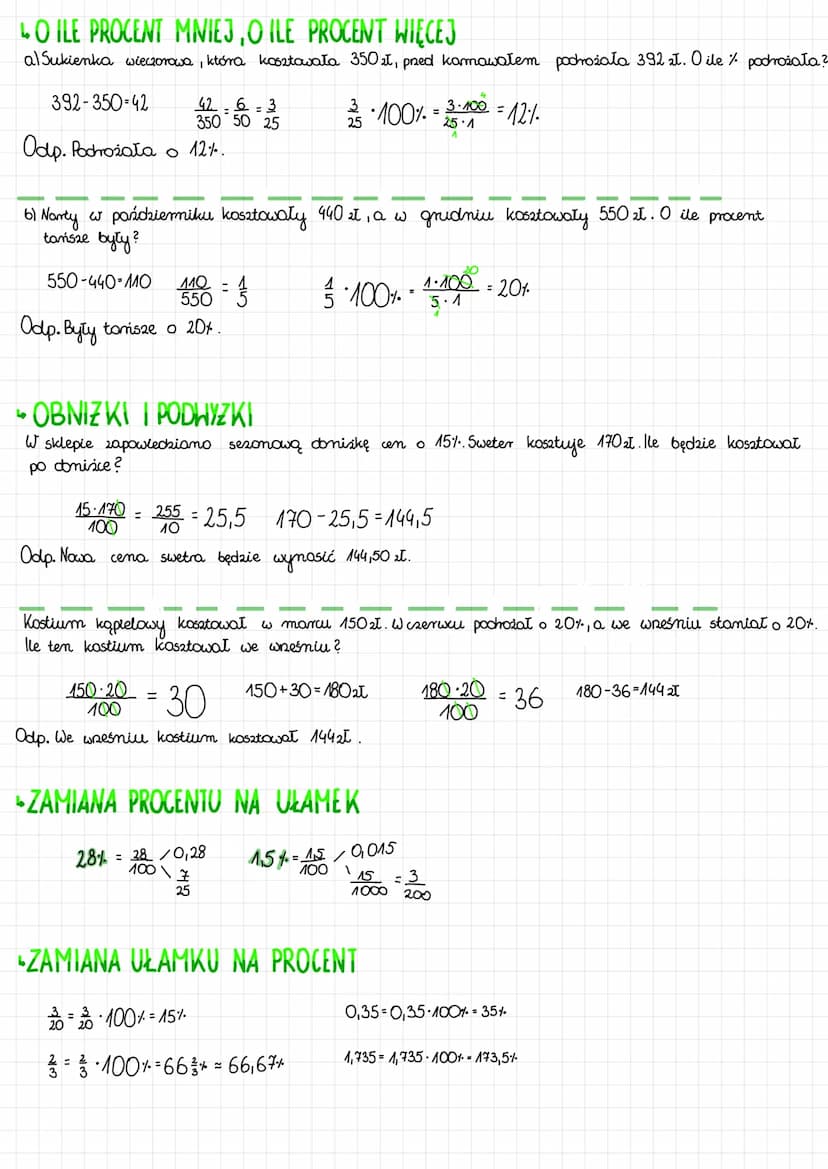 ↳ O ILE PROCENT MNIEJ, O ILE PROCENT WIĘCEJ
a) Sukienka wieczorowa, która kosztowała 350 zł, przed karnawałem podrożała 392 zł. O ile % podrożała?
392-350=42 42/350 = 6/50 = 3/25 3/25 · 100% = 3·100/25·1 = 12% 4 1
Odp. Podrożała o 12%.
b) Narty w październiku kosztowały 440 zł, a w grudniu kosztowały 550 zł. O ile procent
tańsze były?
550-440=110 110/550 = 1/5 1/5 · 100% = 1·100/5·1 = 20% 20 1
Odp. Były tańsze o 20%.
↳ OBNIŻKI I PODWYŻKI
W sklepie zapowiedziano sezonową obniżkę cen o 15%. Sweter kosztuje 170 zł. Ile będzie kosztował
po obniżce?
15·170/100 = 255/10 = 25,5 170-25,5=144,5
Odp. Nowa cena swetra będzie wynosić 144,50 zł.
Kostium kąpielowy kosztował w marcu 150 zł. W czerwcu podrożał o 20%, a we wrześniu staniał o 20%.
Ile ten kostium kosztował we wrześniu?
150·20/100 = 30 150+30=180 zł 180·20/100 = 36 180-36=144 zł
Odp. We wrześniu kostium kosztował 144 zł.
↳ ZAMIANA PROCENTU NA UŁAMEK
28% = 28/100 / 0,28 \ 7/25 1,5% = 1,5/100 / 0,015 \ 15/1000 = 3/200
↳ ZAMIANA UŁAMKU NA PROCENT
3/20 = 3/20 · 100% = 15% 0,35 = 0,35·100% = 35%
2/3 = 2/3 · 100% = 66 2/3 % ≈ 66,67% 1,735 = 1,735·100% = 173,5%